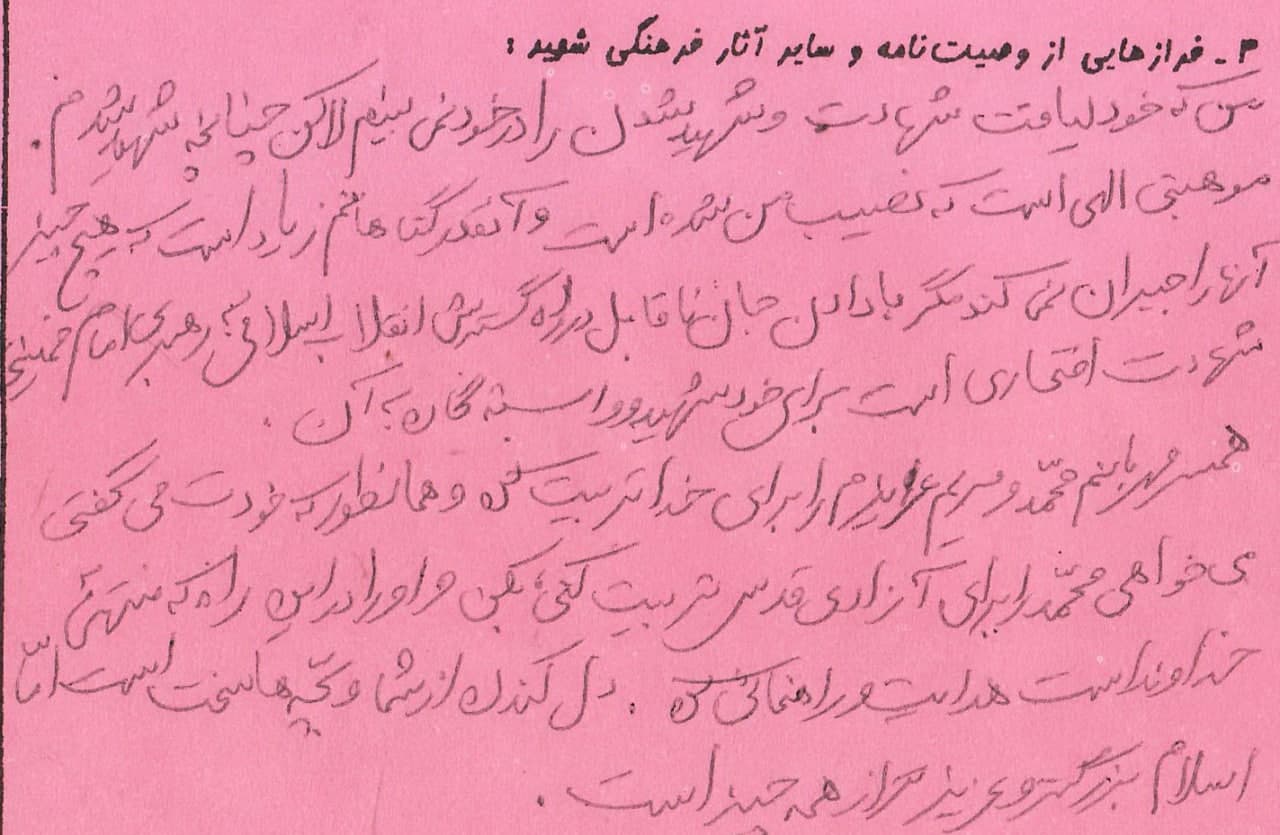 ۳ـ فرازهایی از وصیت‌نامه و سایر آثار فرهنگی شهید :
من که خود لیاقت شهادت و شهید شدن را در خود نمی بینم لاکن چنانچه شهید شدم .
موهبتی الهی است که نصیب من شده است و آنقدر گناهانم زیاد است که هیچ چیز
آنها را جبران نمی کند مگر با دادن جان ناقابل در راه گسترش انقلاب اسلامی به رهبری امام خمینی
شهادت افتخاری است برای خود شهید و وابسته گان به آن .
همسر مهربانم محمّد و مریم عزیزم را برای خدا تربیت کن و همانطور که خودت می گفتی
می خواهی محمّد را برای آزادی قدس تربیت کنی، بکن و او را در این راه که منتهی
خداوند است هدایت و راهنمائی کن . دل کندن از شما و بچّه ها سخت است امّا
اسلام بزرگتر و عزیزتر از همه چیز است .